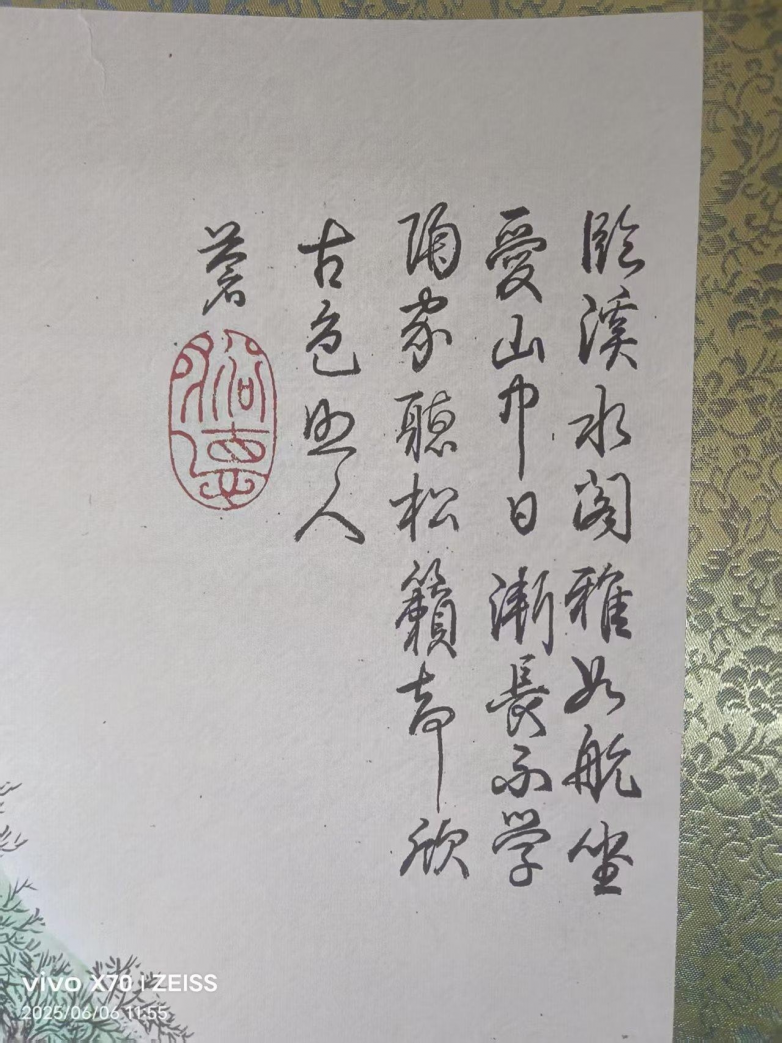 臨溪水阁雅如航坐
愛山中日漸長不学
陶家聽松籟欣
古色照人
蒼
vivo X70 | ZEISS
2025/06/06 11:55